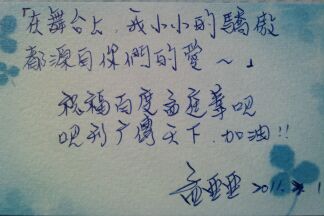 「在舞台上,我小小的驕傲
都源自你們的愛～」
祝福百度孟庭葦吧
吧刊广傳天下.加油!!
2011.